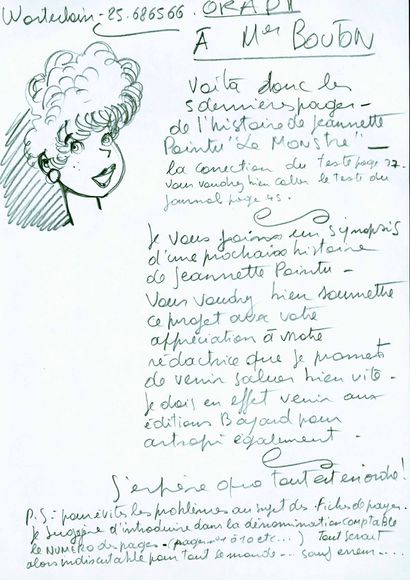 Wasterlain - 25.686566. OKAPI
A Mer BOUTON
Voilà donc les
5 dernières pages -
de l'histoire de Jeannette
Pointu "Le Monstre" -
la correction du texte page 37.
vous voudrez bien caler le texte du
journal page 45.
Je vous joins un synopsis
d'une prochaine histoire
de Jeannette Pointu -
Vous voudrez bien soumettre
ce projet avec votre
appréciation à votre
rédactrice que je promets
de venir saluer bien vite.
Je dois en effet venir aux
éditions Bayard pour
également -
J'espère que tout est en ordre!
P.S: pour éviter les problèmes au sujet des Fiches de payes.
Je suggère d'introduire dans la dénomination COMPTABLE
le NUMÉRO des pages - (pages à 10 etc...) Tout serait
alors indiscutable pour tout le monde - sauf erreur....